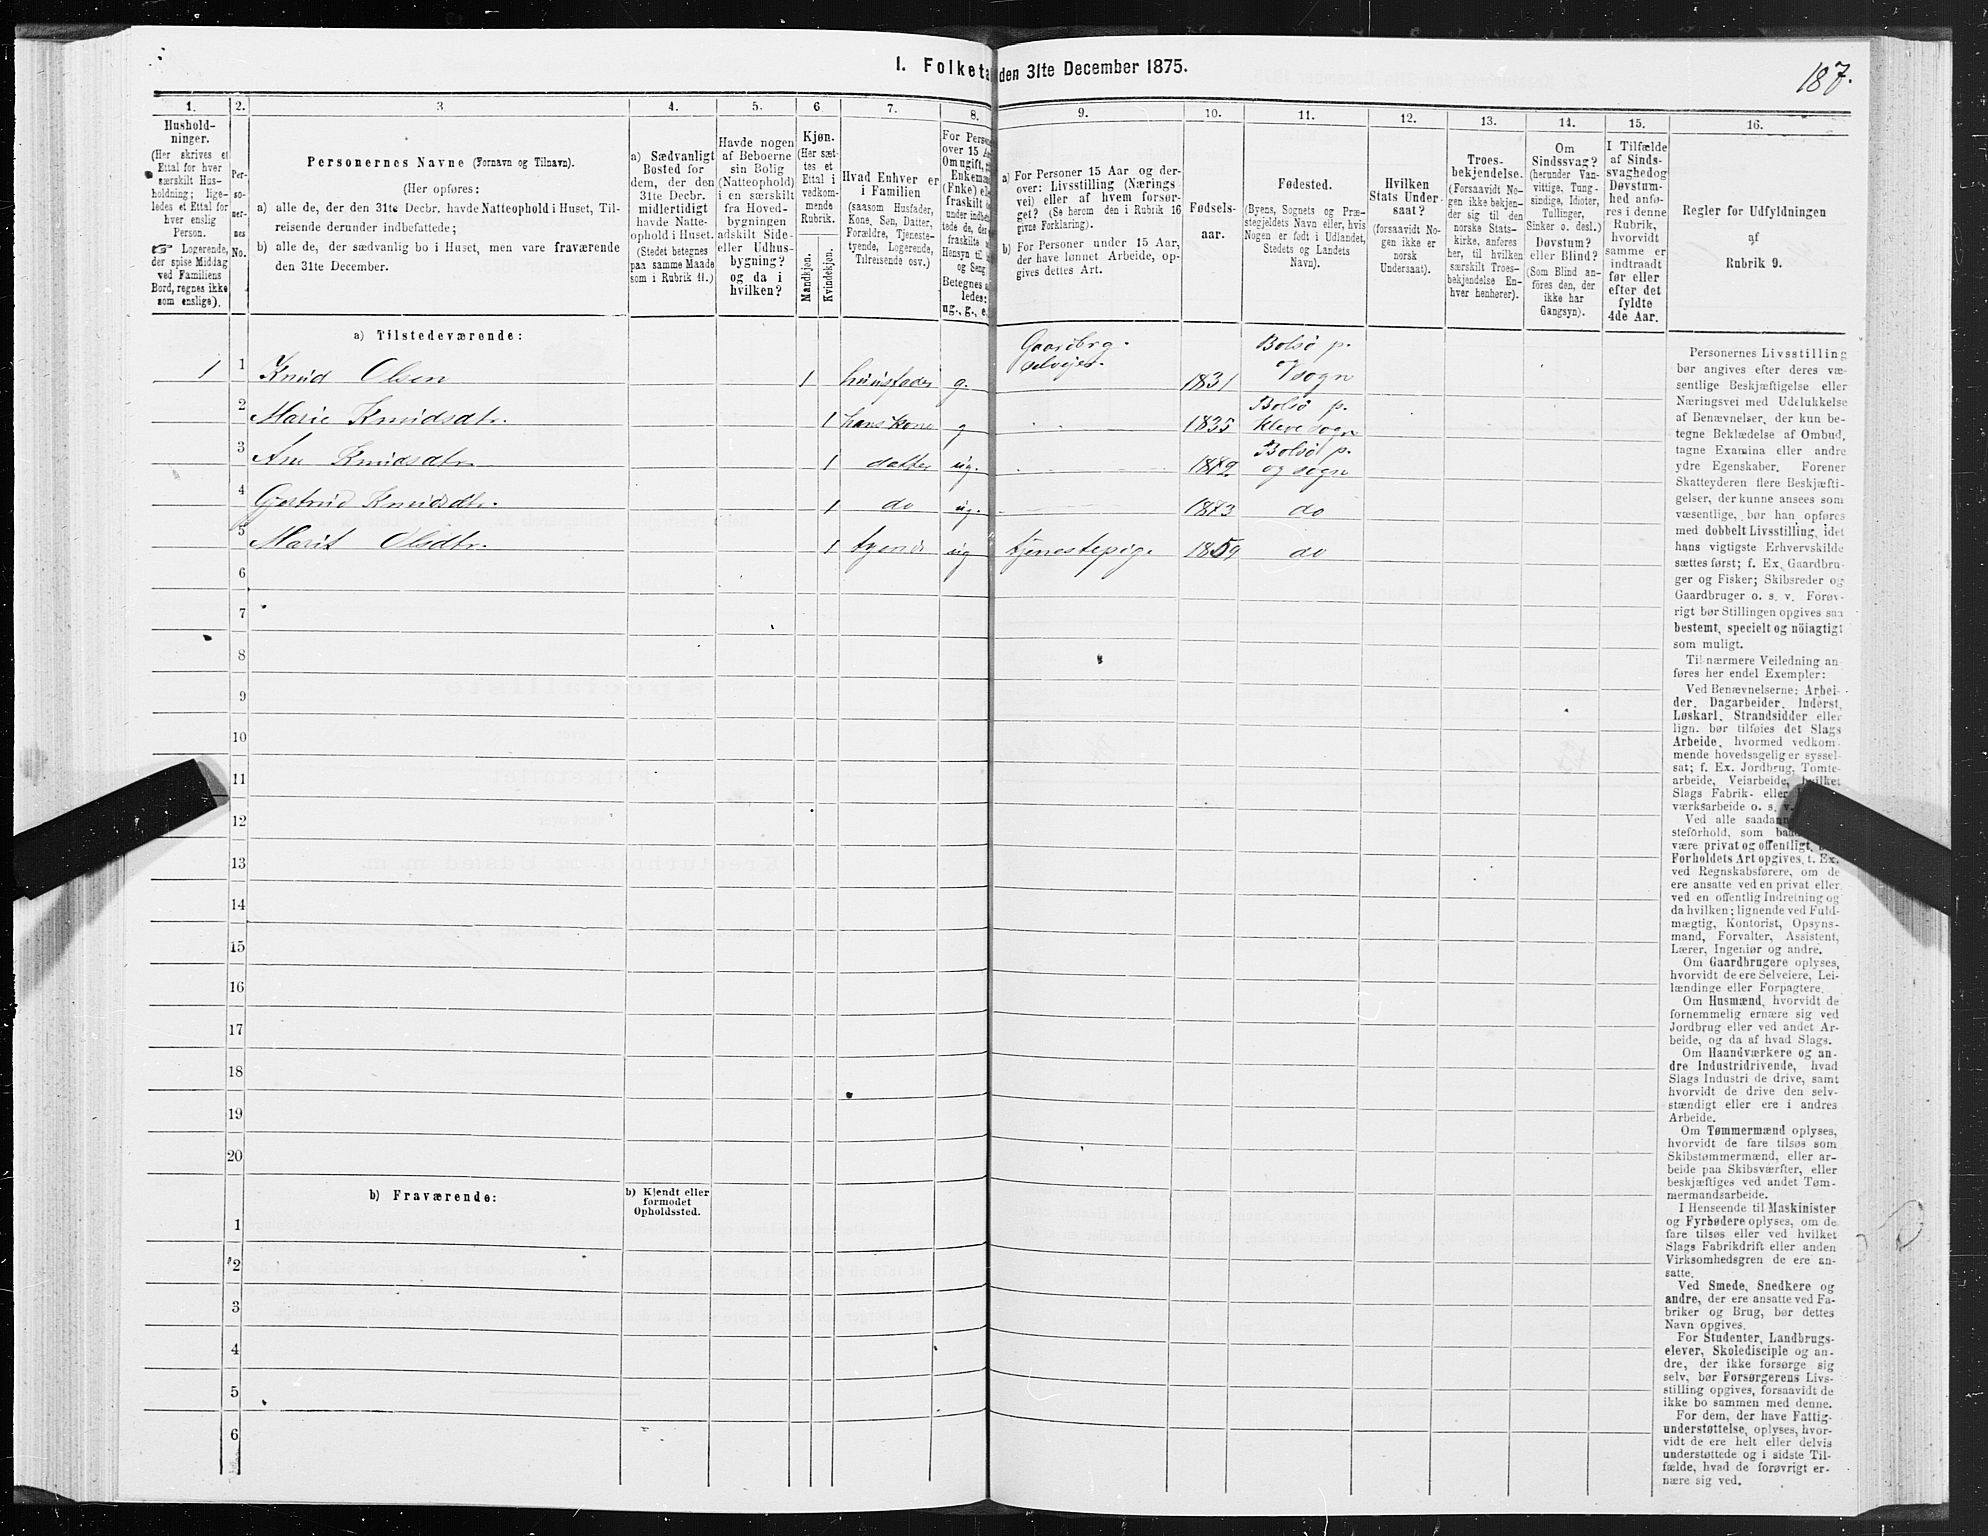 187.
I. Folketa den 31te December 1875.
1. 2. 3 4. 5. 6 7. 8. 9. 10. 11. 12. 13. 14. 15. 16.
Hushold-
ninger.
(Her skrives et
Ettal for hver
særskilt Hus-
holdning; lige-
ledes et Ettal for
hver enslig
Person.
☞ Logerende,
der spise Middag
ved Familiens
Bord, regnes ikke
som enslige).
Per-
so-
ner-
nes
No.
Personernes Navne (Fornavn og Tilnavn).
(Her opføres:
a) alle de, der den 31te Decbr. havde Natteophold i Huset, Til-
reisende derunder indbefattede;
b) alle de, der sædvanlig bo i Huset, men vare fraværende
den 31te December.
a) Sædvanligt
Bosted for
dem, der den
31te Decbr.
midlertidigt
havde Natte-
ophold i Huset.
(Stedet betegnes
paa samme Maade
som i Rubrik 11.)
Havde nogen
af Beboerne
sin Bolig
(Natteophold)
i en særskilt
fra Hoved-
bygningen
adskilt Side-
eller Udhus-
bygning?
og da i
hvilken?
Kjøn.
(Her sæt-
tes et
Ettal i
vedkom-
mende
Rubrik.
Mandkjøn.
Kvindekjøn.
Hvad Enhver er
i Familien
(saasom Husfader,
Kone, Søn, Datter,
Forældre, Tjeneste-
tyende, Logerende,
Tilreisende osv.)
For Person
over 15 Aa
Om ugift,
Enkemæn
(Fnke) el
fraskilt
under indbe
tede de, de
fraskilte
Hensyn til
og Seng
Betegnes
ledes:
ug., g., e.
a) For Personer 15 Aar og der-
over: Livsstilling (Nærings
vei) eller af hvem forsør-
get? (Se herom den i Rubrik 16
givne Forklaring).
b) For Personer under 15 Aar,
der have lønnet Arbeide, op-
gives dettes Art.
Fødsels-
aar.
Fødested.
(Byens, Sognets og Præ-
stegjeldets Navn eller, hvis
Nogen er født i Udlandet,
Stedets og Landets
Navn).
Hvilken
Stats Under-
saat?
(forsaavidt No-
gen ikke er
norsk
Undersaat).
Troes-
bekjendelse.
(Forsaavidt No-
gen ikke bekjen-
der sig til den
norske Stats-
kirke, anføres
her, til hvilken
særskilt Troes-
bekjendelse En-
hver henhører).
Om
Sindssvag?
(herunder Van-
vittige, Tung-
sindige, Idioter,
Tullinger,
Sinker o. desl.)
Døvstum?
eller Blind?
(Som Blind an-
føres den, der
ikke har
Gangsyn).
I Tilfælde
af Sinds-
svaghed og
Døvstum-
hed anfø-
res i denne
Rubrik,
hvorvidt
samme er
indtraadt
før eller
efter det
fyldte
4de Aar.
Regler før Udfyldningen
af
Rubrik 9.
a) Tilstedeværende:
1 1 Knud Olsen 1 huusfader g. Gaardbrg. selveier. 1831 Bolsø p. V sogn
2 Marie Knudsdtr. 1 hans kone g 1835 Bolsø p. Kleve sogn
3 Ane Knudsdtr 1 datter ug. Bolsø p. og sogn
4 Gjertrud Knudsdtr. 1 do ug. 1873 do
5 Marit Olsdtr. 1 tyende ug tjenestepige 1859 do
6
7
8
9
10
11
12
13
14
15
16
17
18
19
20
b) Fraværende:
b) Kjendt eller
formodet
Opholdssted.
1
2
3
4
5
6
Personernes Livsstilling
bør angives efter deres væ-
sentlige Beskjæftigelse eller
Næringsvei med Udelukkelse
af Benævnelser, der kun be-
tegne Beklædelse af Ombud,
tagne Examina eller andre
ydre Egenskaber. Forener
Skatteyderen flere Beskjæfti-
gelser, der kunne ansees som
væsentlige, bør han opføres
med dobbelt Livsstilling, idet
hans vigtigste Erhvervskilde
sættes først; f. Ex. Gaardbru-
ger og Fisker; Skibsreder og
Gaardbruger o. s. v. Forøv-
rigt bør Stillingen opgives saa
bestemt, specielt og nøiagtigt
som muligt.
Til nærmere Veiledning an-
føres her endel Exempler:
Ved Benævnelserne: Arbei-
der, Dagarbeider, Inderst,
Løskarl, Strandsidder eller
lign. bør tilføies det Slags
Arbeide, hvormed vedkom-
mende hovedsagelig er syssel-
sat; f. Ex. Jordbrug, Tomte-
arbeide, Veiarbeide, hvilket
Slags Fabrik- eller
værksarbeide o. s. v.
Ved alle saadan
steforhold, som baa
være privat og offentligt,
Forholdets Art opgives, t. Ex.
ved Regnskabsførere, om de
ere ansatte ved en privat eller
ved en offentlig Indretning og
da hvilken; lignende ved Fuld-
mægtig, Kontorist, Opsyns-
mand, Forvalter, Assistent,
Lærer, Ingeniør og andre.
Om Gaardbrugere oplyses,
hvorvidt de ere Selveiere, Lei-
lændinge eller Forpagtere.
Om Husmænd, hvorvidt de
fornemmelig ernære sig ved
Jordbrug eller ved andet Ar-
beide, og da af hvad Slags.
Om Haandværkere og an-
dre Industridrivende, hvad
Slags Industri de drive, samt
hvorvidt de drive den selv-
stændigt eller ere i andres
Arbeide.
Om Tømmermænd oplyses,
hvorvidt de fare tilsøs som
Skibstømmermænd, eller ar-
beide paa Skibsværfter, eller
beskjæftiges ved andet Tøm-
mermandsarbeide.
I Henseende til Maskinister
og Fyrbødere oplyses, om de
fare tilsøs eller ved hvilket
Slags Fabrikdrift eller anden
Virksomhedsgren de ere an-
satte.
Ved Smede, Snedkere og
andre, der ere ansatte ved Fa-
briker og Brug, bør dettes
Navn opgives.
For Studenter, Landbrugs-
elever, Skoledisciple og an-
dre, der ikke forsørge sig
selv, bør Forsørgerens Livs-
stilling opgives, forsaavidt de
ikke bo sammen med denne.
For dem, der have Fattig-
understøttelse, oplyses, hvor-
vidt de ere helt eller delvis
understøttede og i sidste Til-
fælde, hvad de forøvrigt er-
nære sig ved.